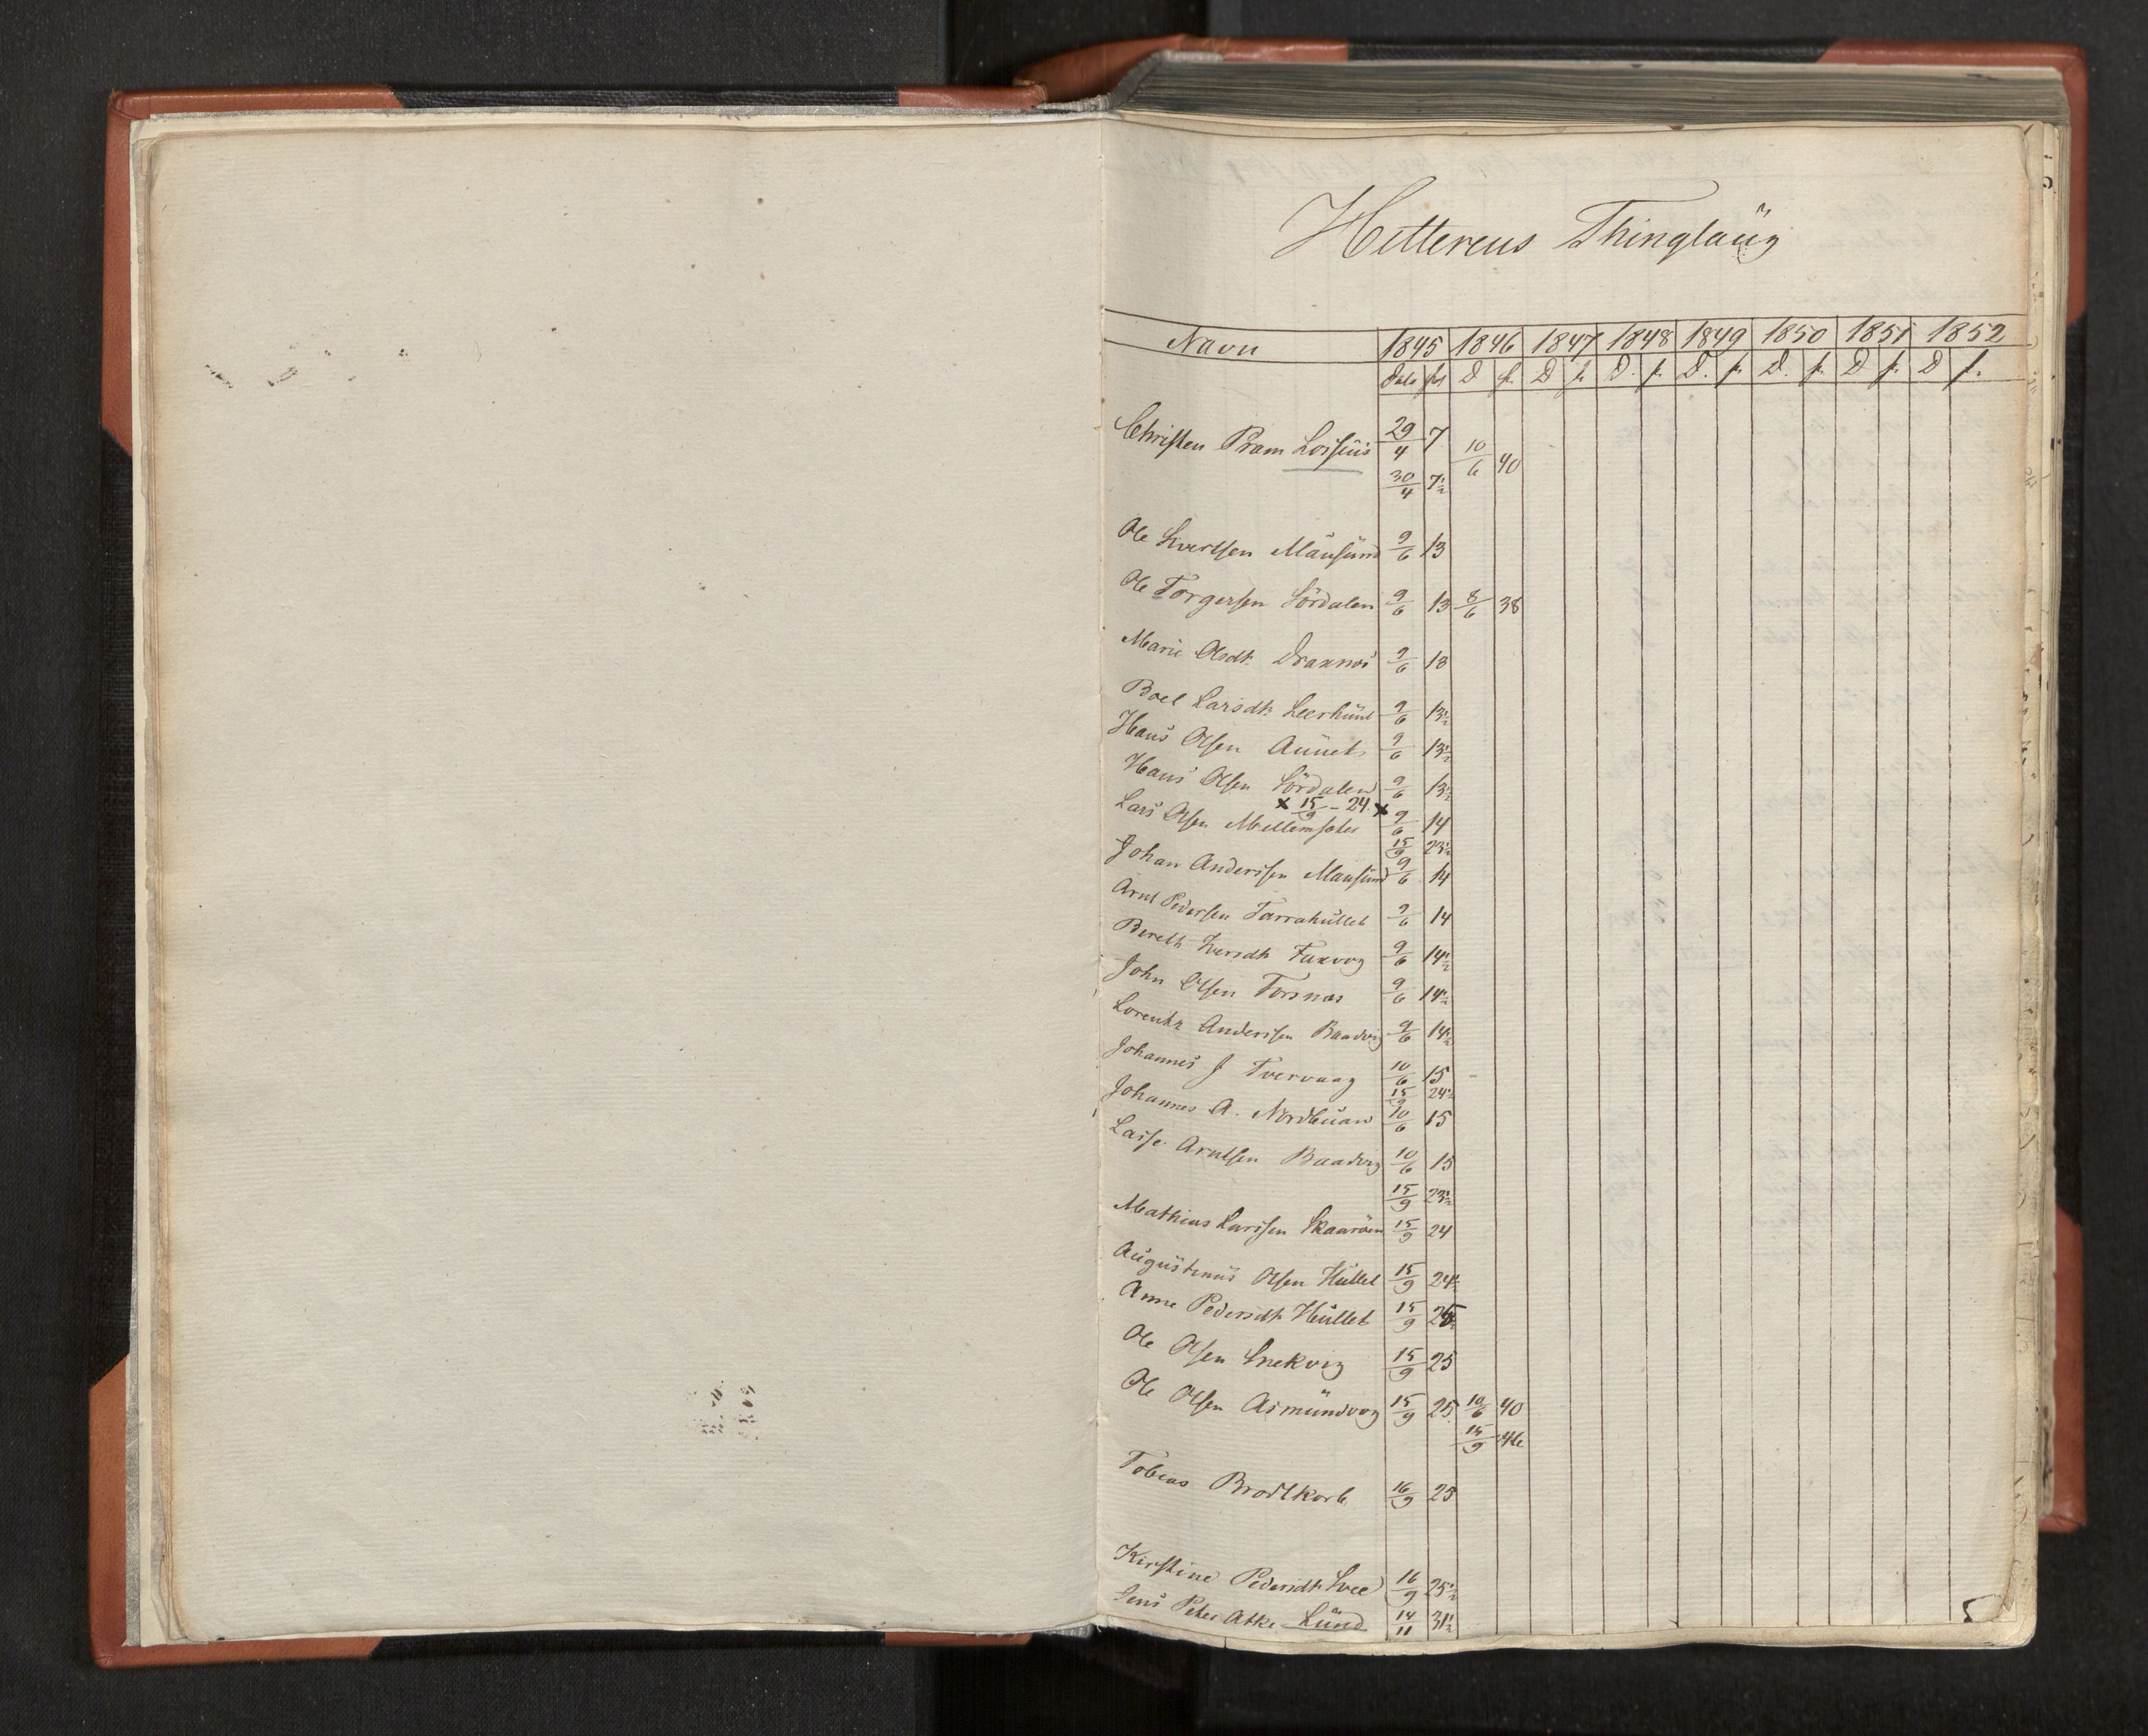 Hitterens Thinglaug
Navn 1845 1846 1847 1848 1849 1850 1851 1852
Dato fol D f. D f. D. f. D. f. D. f. D f. D f.
Christen Bram Lossius 29/4 7 10/6 40
30/4 7½
Ole Ivertsen Mausund 9/6 13
Ole Torgersen Sördalen 9/6 13 8/6 38
Marie Olsdtr. 9/6 13
Boel Larsdtr. 9/6 13½
Hans Olsen Aunet 9/6 13½
Hans Olsen Sördalen 9/6 13½
x 15/9 - 24. x
Lars Olsen 9/6 14
15/9 23½
Johan Anderssen Mausund 9/6 14
Arnt Pedersen Tarrahullet 9/6 14
Bereth Iversdtr 9/6 14½
John Olsen Forsnæs 9/6 14½
Lorentz Anderssen Baadvig 9/6 14½
Johannes J Tvervaag 10/6 15
15/9 24½
Johannes A. Nordbuan 10/6 15
Lasse Arntsen Baadvig 10/6 15
15/9 23½
Mathias Larssen Skaaröen 15/9 24
Augustinus Olsen Hullet 15/9 24½
Anne Pedersdtr Hullet 15/9
Ole Olsen Snekvig 15/9 25
Ole Olsen Asmundvog 15/9 25. 10/6 40
15/9 46
Tobias Brodtkorb 16/9 25
Kirstine Pedersdtr 16/9 25½
Jens Peter Lund 14/11 31½
5